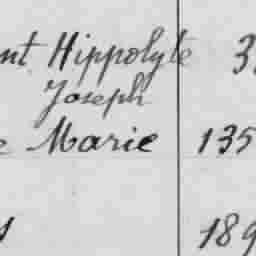 nt Hippolyte 3
Joseph
e Marie 135
189